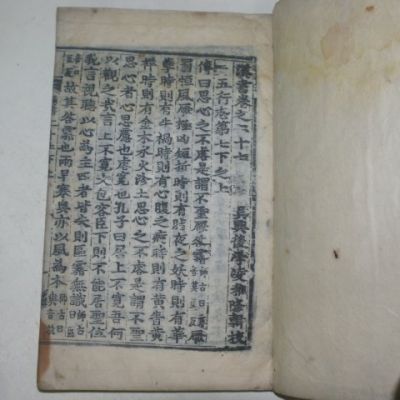 漢書卷之二十七 吳興後學凌稚隆輯校
五行志第七下之上
傳曰思心之不是謂不聖厥咎霧師古曰
罰恒風厥極凶短折時則有脂夜之妖時則有華
孽時則有牛禍時則有心腹之痾時則有黃眚黃
祥時則有金木水火沴土思心之不是謂不聖
思心者心思慮也寬也孔子曰居上不寬吾何
以觀之哉言上不寬大包容臣下則不能居聖位
貌言視聽以心為主四者皆失則區霧無識師古曰
故其咎霧也雨旱寒奧亦以風為本師古曰